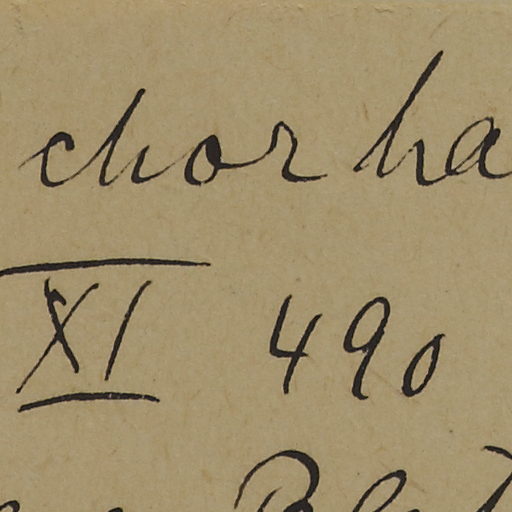 chor ha
XI 490